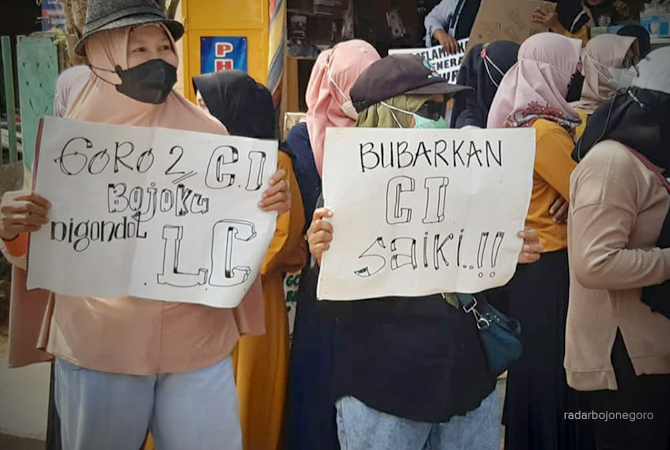 GORO2 CI
Bojoku
Digondol
LC
BUBARKAN
CI
Saiki..!!
radarbojonegoro